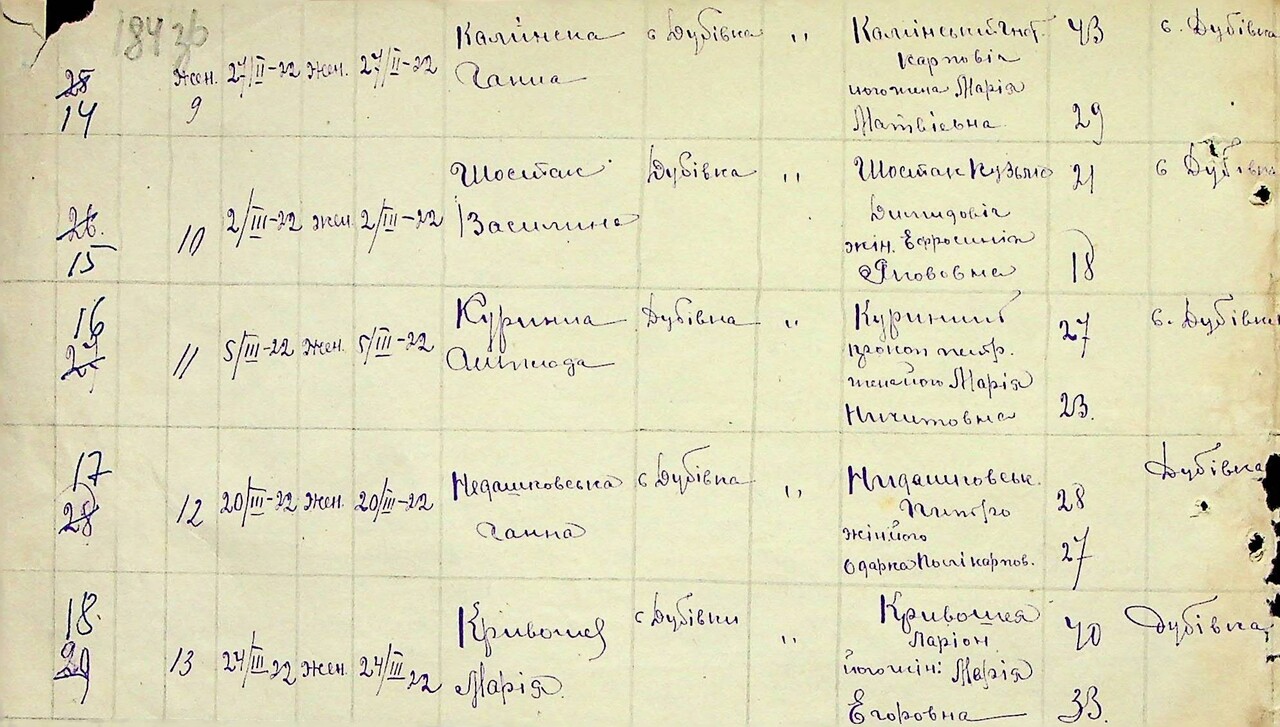 184 зв
25
14
жен.
9
27/II-22
жен.
27/II-22
Калінська
Ганна
с Дубівка
"
Калінський Гнат.
Карповіч
його жина Марія
Матвієвна
43
29
с. Дубівка
26.
15
10
2/III-22
жен.
2/III-22
Шостак
Василина
Дубівка
"
Шостак Кузьма
жін. Ефросинія
Якововна
21
18
с Дубівка
16
27
11
5/III-22
жен.
5/III-22
Куринна
Дубівка
"
Куринний
прокоп петр.
жена його Марія
Никитовна
27
23.
с. Дубівка
17
28
12
20/III-22
жен.
20/III-22
Недашковська
Ганна
с Дубівка
"
Нидашковськ.
Питро
жін його
Одарка Полікарпов.
28
27
Дубівка
18.
29
13
24/III 22
жен.
24/III 22
Крівошея
Марія.
с Дубівки
"
Кривошея
Ларіон
його жіні Марія
Егоровна
40
33.
Дубівка